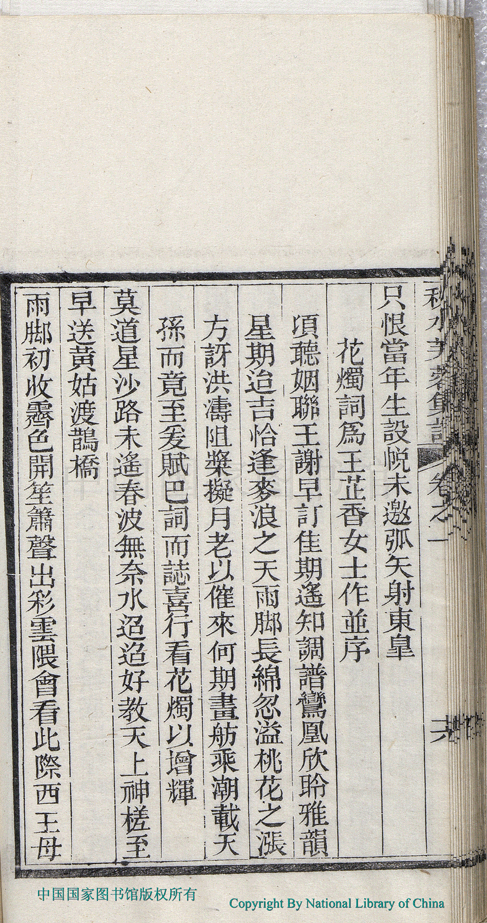 秋水芙蓉集詩 卷之一 六
只恨當年生設帨未邀弧矢射東皐
花燭詞爲王芷香女士作並序
項聽姻聯王謝早訂佳期遙知調譜鸞凰欣聆雅韻
星期迨吉恰逢麥浪之天雨脚長綿忽溢桃花之漲
方訝洪濤阻槳擬月老以催來何期畫舫乘潮載天
孫而竟至爰賦巴詞而誌喜行看花燭以增輝
莫道星沙路未遙春波無奈水迢迢好教天上神槎至
早送黃姑渡鵲橋
雨脚初收霽色開笙簫聲出彩雲隈會看此際西王母
中国国家图书馆版权所有
Copyright By National Library of China